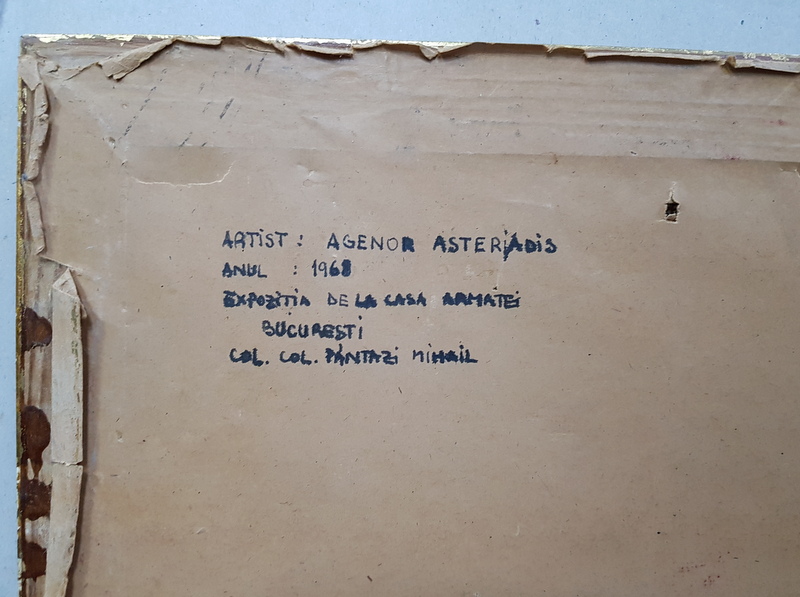 ARTIST : AGENOR ASTERIADIS
ANUL : 1968
EXPOZITIA DE LA CASA ARMATEI
BUCURESTI
COL. COL. PANTAZI MIHAIL